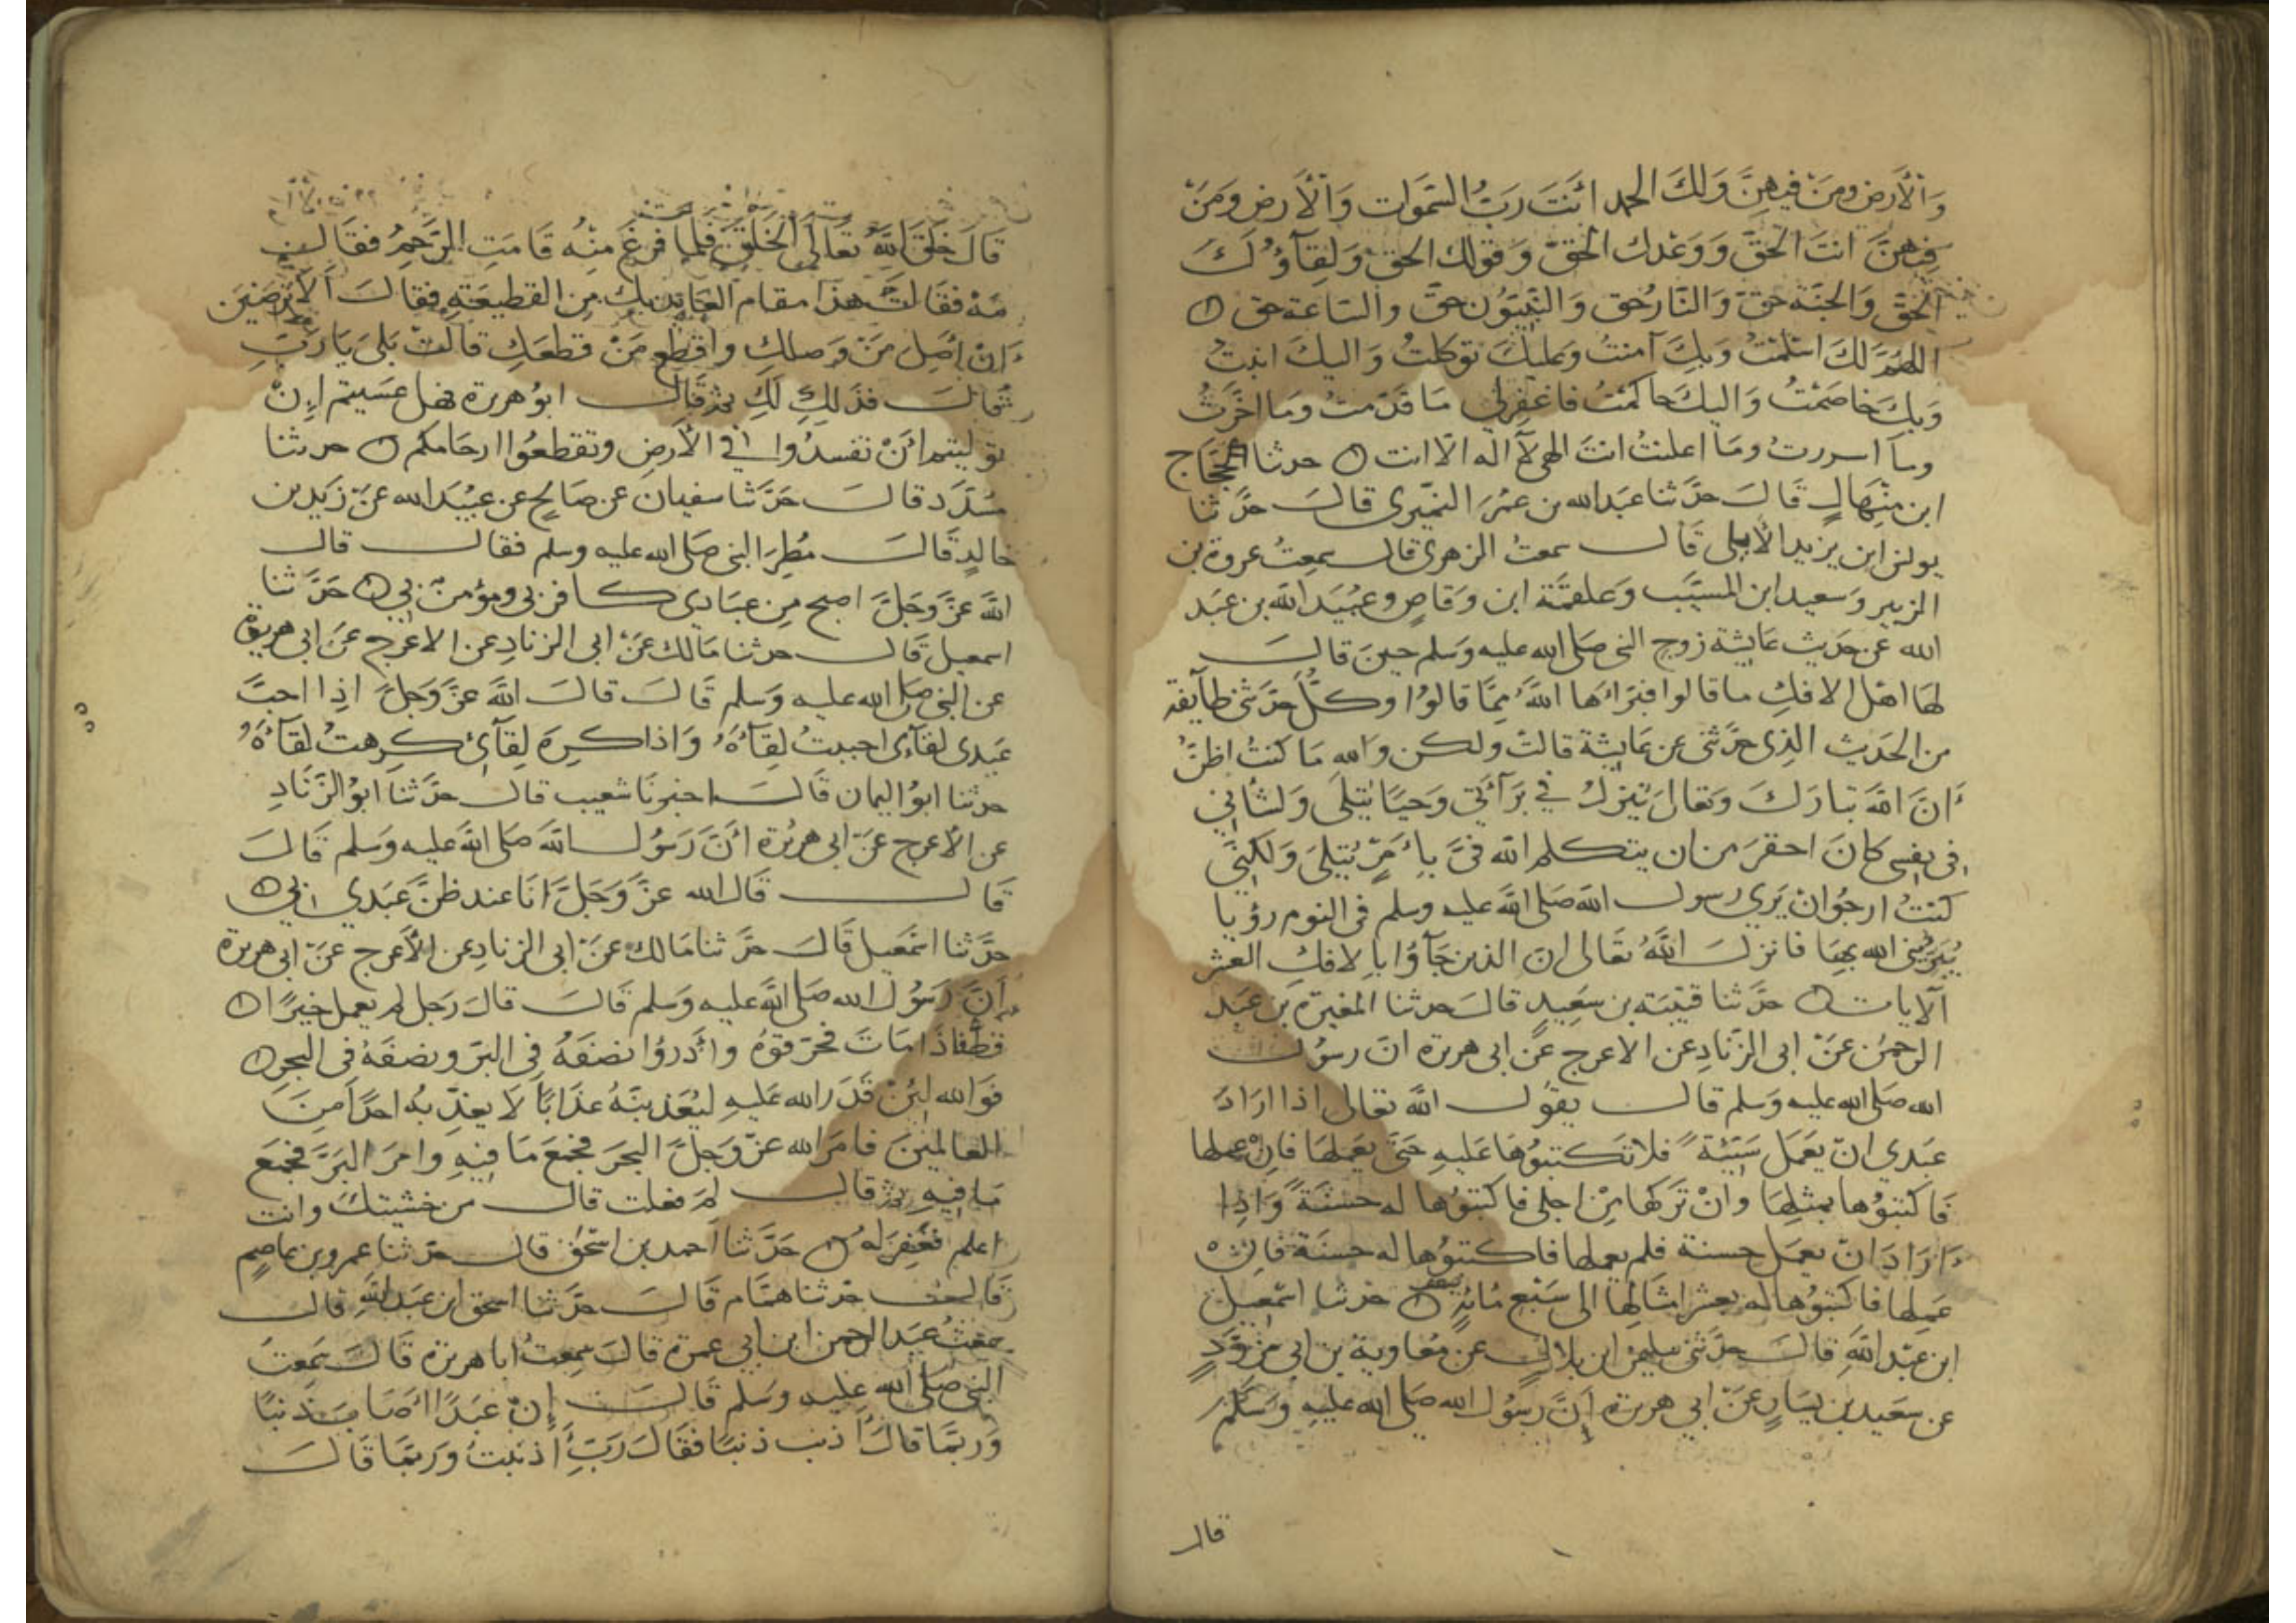 وَالْأَرض ومَنْ فيهِنَّ وَلَكَ الحمد انْتَ رَبُّ السَّمَوات وَالْأَرض وَمَنْ
فِيهنَّ انتَ الحَقّ وَوَعْدك الحَقّ وَقولك الحق وَلِقَآؤُكَ
الحَقّ وَالجنّة حقّ وَالنَّار حق وَالنَّبِيّون حقّ والسّاعة حق
اللهُمّ لَكَ اسْلَمْتُ وَبِكَ آمنتُ وَعليكَ توكلتُ وَاليكَ انبتُ
وَبِكَ خاصَمْتُ وَاليكَ حاكمتُ فاغفِرلي مَا قدّمتُ وَمَا اخّرتُ
ومَا اسررتُ ومَا اعلنتُ انتَ الهى لَآ اله الّا انت حدثنا الحَجَّاج
ابن مِنْهالٍ قَالَ حدَّثنا عبدالله بن عُمَرَ النُمَيْرى قالَ حدَّثنا
يونس ابن يزيد الأيلى قَال سمعتُ الزهرى قال سمِعتُ عروة بن
الزبير وَسعيد ابن المسيَّب وَعلقمَة ابن وَقاصٍ وعُبَيْد الله بن عَبْد
الله عن حَديث عَايشة زوج النبى صَلى الله عليه وَسَلم حينَ قالَ
لهَا اهْل الافك ما قالوا فبَرّاَها اللَّهُ ممَّا قالوُا وكُلّ حَدّثنى طآيفة
من الحَديث الذِى حَدَّثنى عن عَايشة قالت ولكن وَالله مَا كنتُ اظنّ
اَنَّ اللَّه تبارَكَ وَتعَالى يُنْزِلُ في بَرَآءَتي وَحيًا يُتلَى وَلشأنى
فى نفسى كانَ احقرَ من ان يتكلم الله فىَّ بِأَمْرٍ يُتلى وَلكِنِّى
كنتُ ارجُوا انْ يَرى رسول الله صَلَّى اللَّه عليه وسلم فى النوم رؤيا
يُبَرِّئنى الله بِهَا فانزلَ اللَّهُ تعَالى انَ الذين جَآؤُا بالافك العشر
الآيات حدَّثنا قتيْبَة بن سَعِيدٍ قالَ حدثنا المغيرة بن عبَد
الرحمٰن عن ابى الزّنادِ عن الاعرج عَن ابى هريرة انّ رسوُل
الله صَلى الله عليه وَسلم قال يقوُل اللَّه تعَالى اذا ارَادَ
عَبْدي انْ يَعْمَل سَيّئة فلا تكتبوُهَا عَليهِ حَتّى يعَملهَا فاِنْ عملها
فاكتبُوُها بمثلِهَا وانْ تَركها مِن اجلى فاكتبوُها له حسنَة وَاذِا
اَرَادَ انْ يعمَل حسنة فلم يعملها فاكتبوُها له حسنَة فاِنْ
عَمِلها فاكتبوُها له بعشر امثالِهَا الى سَبْع مُائةٍ حدثنا اسْمعيل
ابن عبْد اللَّهِ قالَ حدَّثنى سليمٰن ابن بلالٍ عن مُعَاوية بن ابى مُزَرّدٍ
عن سَعيد بن يَسَارٍ عَن ابي هريرة اِنَّ رسُول الله صَلى الله عليهِ وَسَلّم
قال
قَالَ خلَقَ اللَّه تعَالَى الخَلقَ فلما فرغَ منْهُ قامَتِ الرَّحِمُ فقَال
مَهْ فقَالتْ هذا مقام العَايذ بك مِن القطيعَةِ فقالَ الَا ترضَيْنَ
اَنْ اَصِلَ مَنْ وَصلكِ واَقطع مَنْ قطعَكِ قالتْ بَلى يَارَبِّ
قالَ فذَلكِ لَكِ ثم قَالَ ابوُ هريرة فهل عسَيتم اِنْ
توليتم اَنْ تفسدُوا في الأرض وتقطعُوا ارحَامكم حدثنا
مُسَدّد قالَ حَدَّثنا سفيان عن صَالحٍ عن عبُيْد الله عن زَيْد بن
خالدٍ قالَ مُطِرَ النبى صَلى الله عليه وسلم فقال قال
اللَّه عَزَّ وَجَلَّ اصبح مِن عِبَادى كافر بى ومؤمنٌ بى حَدَّثنا
اسمعيل قَال حدثنا مَالك عَن ابى الزنادِ عن الاعرج عن ابى هريرة
عن النبى صَلى الله عليه وَسلم قَالَ قالَ اللَّه عَزَّ وَجَلَّ اذِا احبَّ
عَبدى لقآئى احببتُ لِقآءَهُ وَاذا كرِهَ لِقآئ كرِهتُ لقآءَهُ
حدثنا ابوُ اليمان قَالَ اخبرنَا شعيب قال حدَّثنا ابوُ الزّنَادِ
عن الأعرج عَن ابى هريرة اَنَّ رَسُول اللَّه صَلى اللَّه عليه وَسلم قَالَ
قَال قَال الله عزَّ وَجَلَّ انَا عند ظنّ عَبدي بي
حدَّثنا اسْمعيل قَالَ حدَّثنا مَالك عن ابى الزنادِ عن الأعرج عن ابى هريرة
اَنَّ رَسُول الله صَلى اللَّه عليه وَسلم قَالَ قالَ رَجل لم يعمل خَيرًا
قط فاذَا مَاتَ فحَرّقوُهُ واْذروُا نصْفَهُ فى البَرّ ونصْفَهُ فى البحر
فوَالله لئِنْ قدَرَ الله عَليهِ ليُعَذبنَّهُ عذابًا لَا يعذّبُه احدًا مِنَ
العالمينَ فامَرَ الله عزّ وَجَلّ البحرَ فجَمعَ مَا فيهِ وامرَ البَرَّ فجمعَ
مَا فيهِ ثم قال لِمَ فعلت قال من خشيتكَ وانت
اعلم فغُفِرَ لَهُ حَدَّثنا اَحمد بن اسْحٰق قال حدَّثنا عمرو بن عاصِمٍ
قال حدثنا همَّام قَالَ حدَّثنا اسحق ابن عَبد الله قال
سمعتُ عَبد الرحمن ابن ابي عمرة قالَ سمِعتُ ابا هريرة قالَ سَمِعتُ
النبى صَلى الله عليه وَسَلم قالَ اِنّ عَبدًا اَصَابَ ذنبًا
وَربّمَا قالَ اَذنب ذنبًا فقَالَ رَبِّ اَذنبتُ وَربّمَا قَالَ